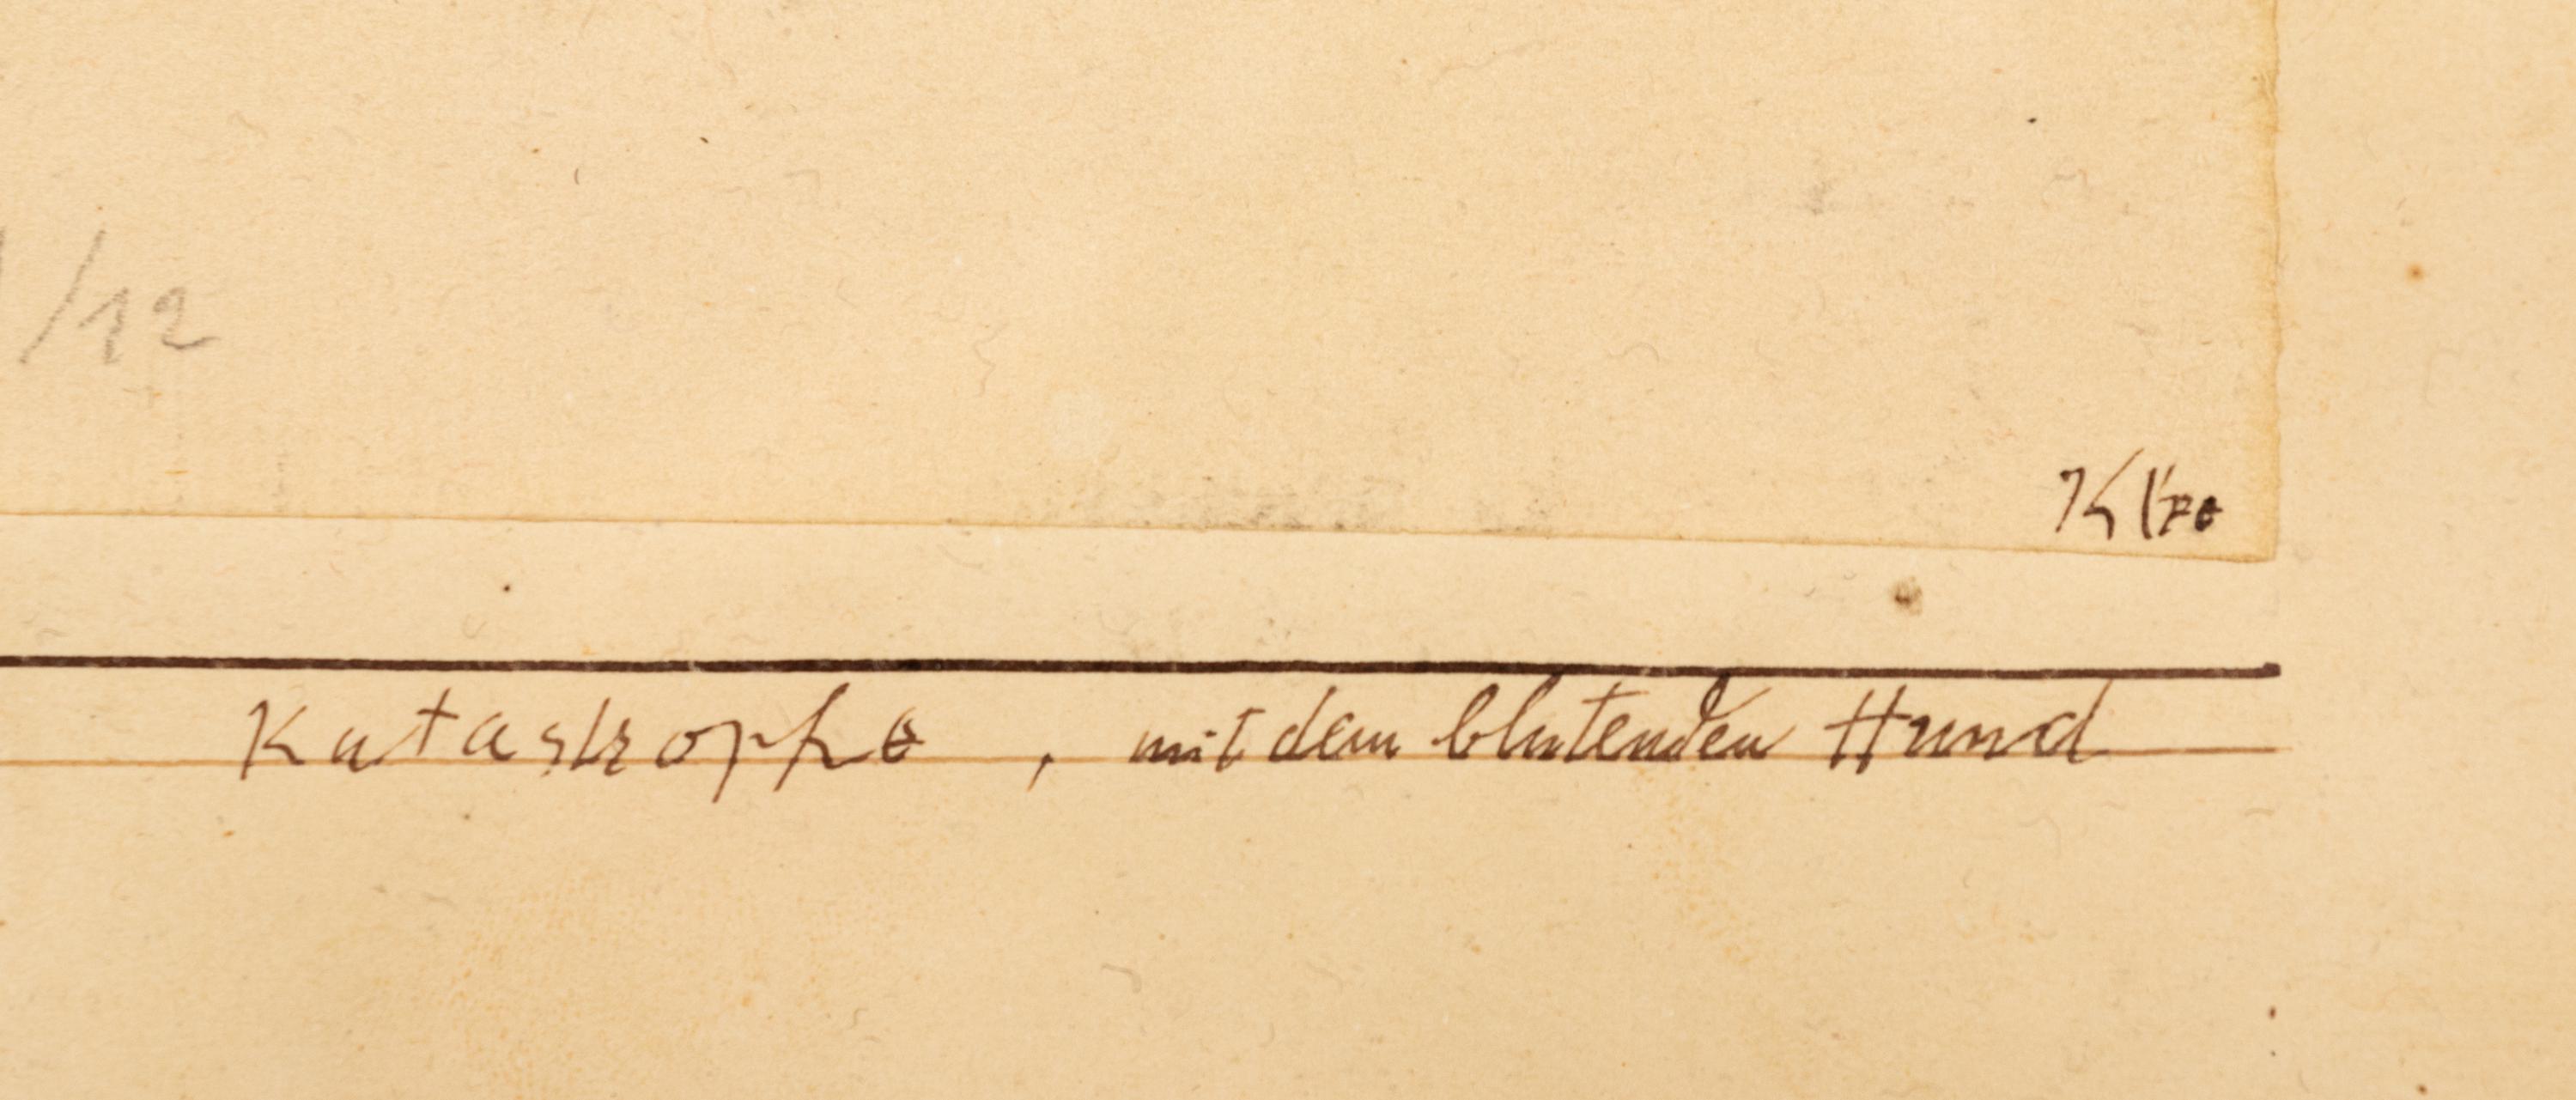 /12
Klee
Katastrophe, mit dem blutenden Hund